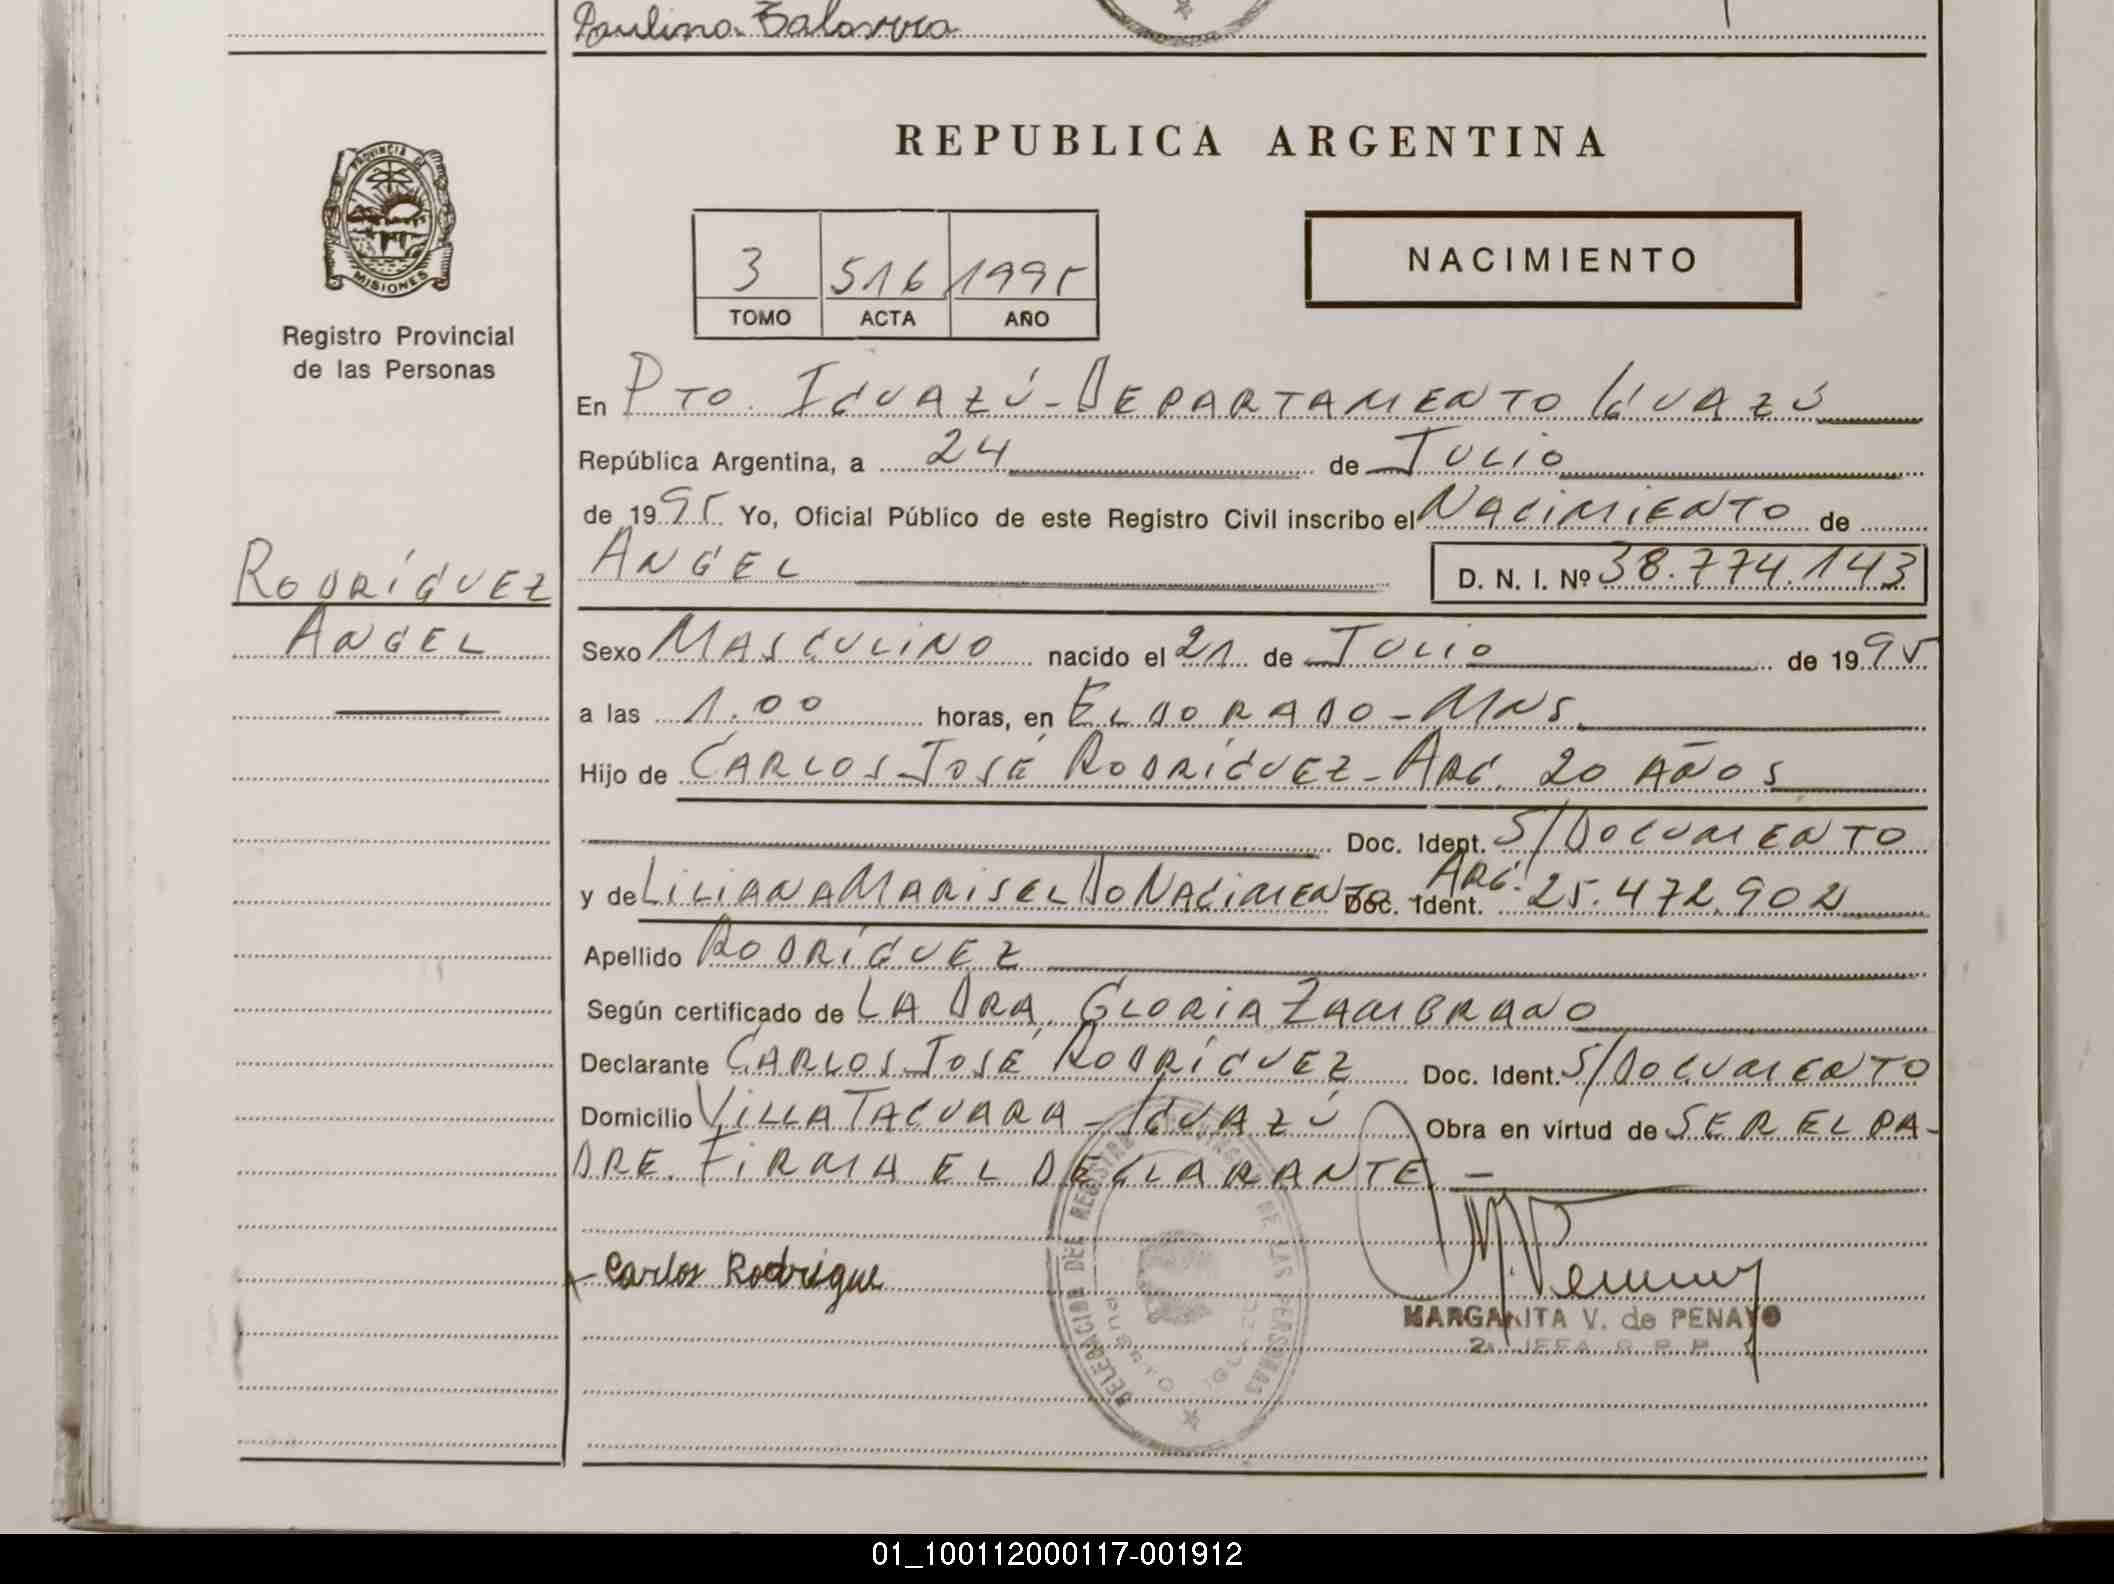 Paulino Balasvra
PROVINCIA DE
MISIONES
Registro Provincial
de las Personas
REPUBLICA ARGENTINA
3 516 1995
TOMO ACTA AÑO
NACIMIENTO
En PTO. IGUAZÚ - DEPARTAMENTO IGUAZÚ
República Argentina, a 24 de JULIO
de 1995 Yo, Oficial Público de este Registro Civil inscribo el NACIMIENTO de
ANGEL D. N. I. Nº 38.774.143
RODRÍGUEZ
ANGEL
Sexo MASCULINO nacido el 21 de JULIO de 1995
a las 1.00 horas, en ELDORADO - MNS.
Hijo de CARLOS JOSÉ RODRÍGUEZ - ARG. 20 AÑOS
Doc. Ident. S/DOCUMENTO
y de LILIANA MARISEL DO NACIMENTO ARG. Doc. Ident. 25.472.902
Apellido RODRÍGUEZ
Según certificado de LA DRA. GLORIA ZAMBRANO
Declarante CARLOS JOSÉ RODRÍGUEZ Doc. Ident. S/DOCUMENTO
Domicilio VILLA TACUARA - IGUAZÚ Obra en virtud de SER EL PA-
DRE. FIRMA EL DECLARANTE. -
Carlos Rodrigue
DELEGACION DEL REGISTRO PROVINCIAL DE LAS PERSONAS
PUERTO IGUAZU
MARGARITA V. de PENAYO
2. JEFA R P P
01_100112000117-001912